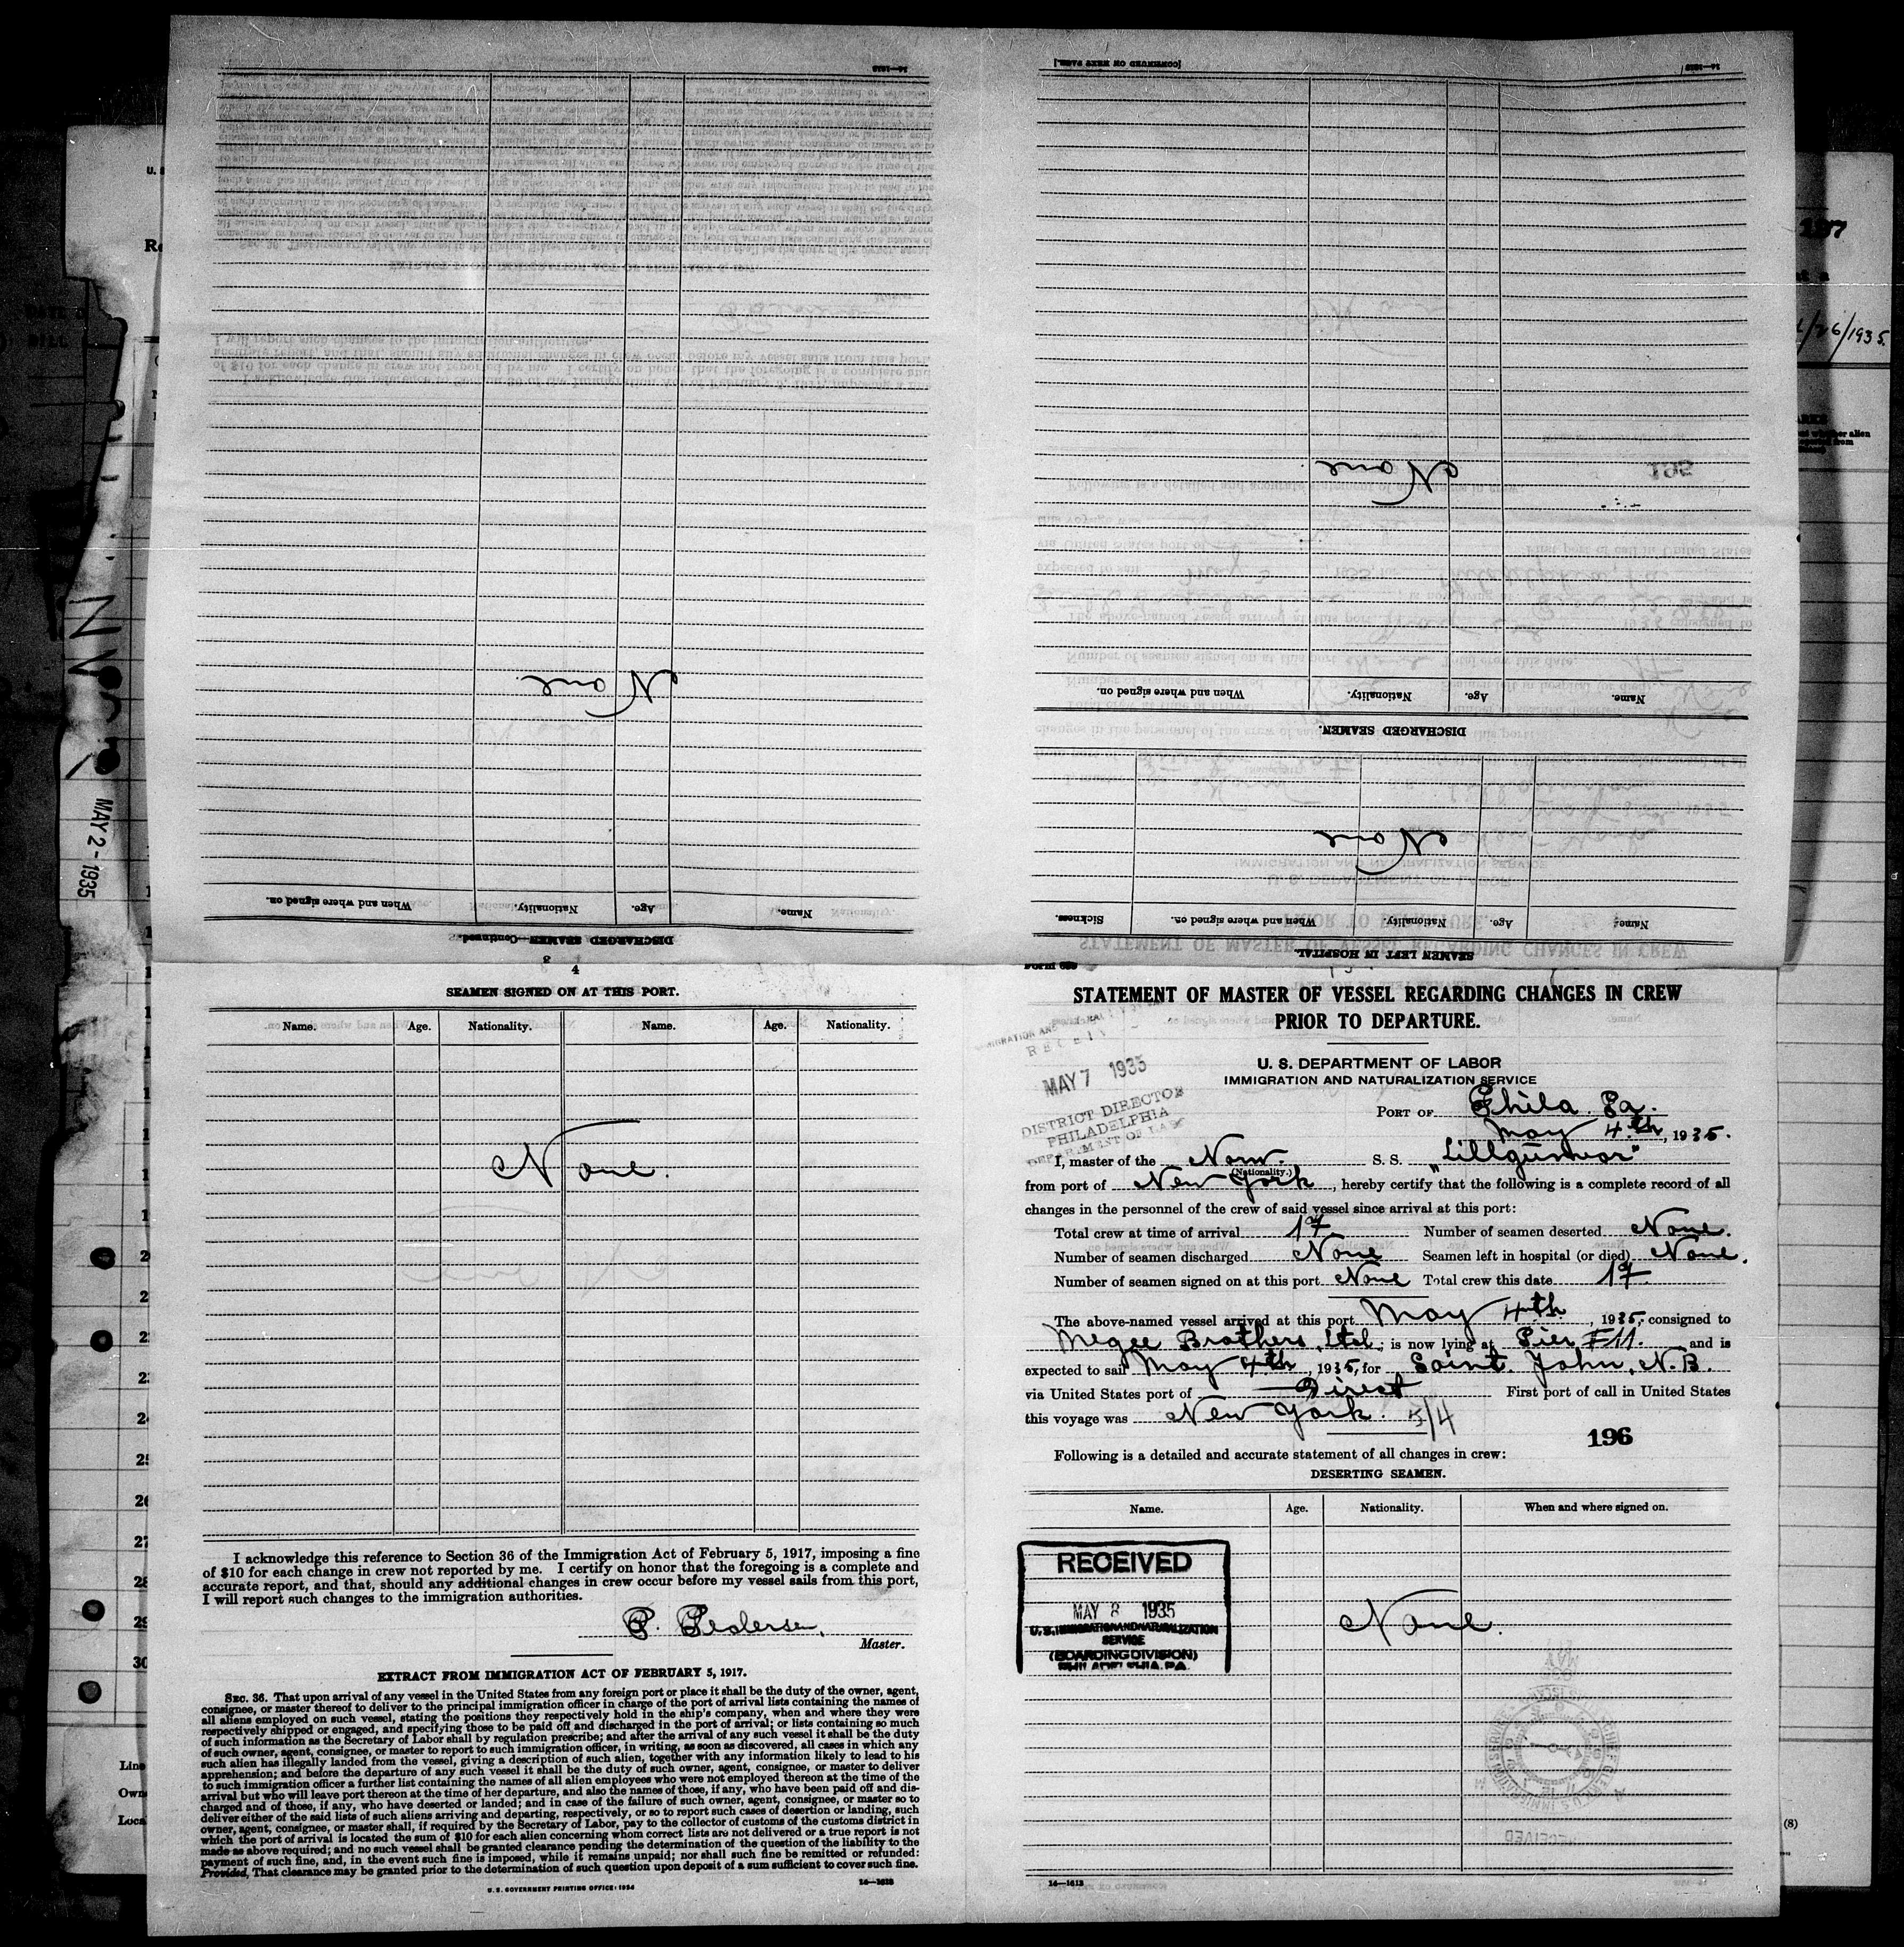 14—1613
[CONTINUED ON NEXT PAGE.]
14—1613
None.
None.
Name.
Age.
Nationality.
When and where signed on.
DISCHARGED SEAMEN—Continued.
3
195
None.
Name.
Age.
Nationality.
When and where signed on.
DISCHARGED SEAMEN.
None
Name.
Age.
Nationality.
When and where signed on.
Sickness.
SEAMEN LEFT IN HOSPITAL.
197
/26/1935.
MAY 2 - 1935
4
SEAMEN SIGNED ON AT THIS PORT.
Name. Age. Nationality. Name. Age. Nationality.
None.
I acknowledge this reference to Section 36 of the Immigration Act of February 5, 1917, imposing a fine
of $10 for each change in crew not reported by me. I certify on honor that the foregoing is a complete and
accurate report, and that, should any additional changes in crew occur before my vessel sails from this port,
I will report such changes to the immigration authorities.
P. Pedersen,
Master.
EXTRACT FROM IMMIGRATION ACT OF FEBRUARY 5, 1917.
SEC. 36. That upon arrival of any vessel in the United States from any foreign port or place it shall be the duty of the owner, agent,
consignee, or master thereof to deliver to the principal immigration officer in charge of the port of arrival lists containing the names of
all aliens employed on such vessel, stating the positions they respectively hold in the ship's company, when and where they were
respectively shipped or engaged, and specifying those to be paid off and discharged in the port of arrival; or lists containing so much
of such information as the Secretary of Labor shall by regulation prescribe; and after the arrival of any such vessel it shall be the duty
of such owner, agent, consignee, or master to report to such immigration officer, in writing, as soon as discovered, all cases in which any
such alien has illegally landed from the vessel, giving a description of such alien, together with any information likely to lead to his
apprehension; and before the departure of any such vessel it shall be the duty of such owner, agent, consignee, or master to deliver
to such immigration officer a further list containing the names of all alien employees who were not employed thereon at the time of the
arrival but who will leave port thereon at the time of her departure, and also the names of those, if any, who have been paid off and dis-
charged and of those, if any, who have deserted or landed; and in case of the failure of such owner, agent, consignee, or master so to
deliver either of the said lists of such aliens arriving and departing, respectively, or so to report such cases of desertion or landing, such
owner, agent, consignee, or master shall, if required by the Secretary of Labor, pay to the collector of customs of the customs district in
which the port of arrival is located the sum of $10 for each alien concerning whom correct lists are not delivered or a true report is not
made as above required; and no such vessel shall be granted clearance pending the determination of the question of the liability to the
payment of such fine, and, in the event such fine is imposed, while it remains unpaid; nor shall such fine be remitted or refunded:
Provided, That clearance may be granted prior to the determination of such question upon deposit of a sum sufficient to cover such fine.
U. S. GOVERNMENT PRINTING OFFICE: 1934
14—1613
STATEMENT OF MASTER OF VESSEL REGARDING CHANGES IN CREW
PRIOR TO DEPARTURE.
U. S. DEPARTMENT OF LABOR
IMMIGRATION AND NATURALIZATION SERVICE
MAY 7 1935
DISTRICT DIRECTOR
PHILADELPHIA
DEPARTMENT OF LABOR
PORT OF Phila. Pa.
May 4th, 1935.
I, master of the Norw. S. S. "Lillgunvor"
(Nationality.)
from port of New York, hereby certify that the following is a complete record of all
changes in the personnel of the crew of said vessel since arrival at this port:
Total crew at time of arrival 17 Number of seamen deserted None.
Number of seamen discharged None Seamen left in hospital (or died) None.
Number of seamen signed on at this port None Total crew this date 17
The above-named vessel arrived at this port May 4th, 1935, consigned to
Megee Brothers, Ltd; is now lying at Pier F11. and is
expected to sail May 4th, 1935, for Saint John, N.B.
via United States port of Direct First port of call in United States
this voyage was New York. 5/4
196
Following is a detailed and accurate statement of all changes in crew:
DESERTING SEAMEN.
Name. Age. Nationality. When and where signed on.
None.
RECEIVED
MAY 8 1935
U. S. IMMIGRATION AND NATURALIZATION
SERVICE
(BOARDING DIVISION)
PHILADELPHIA, PA.
14—1613
(8)